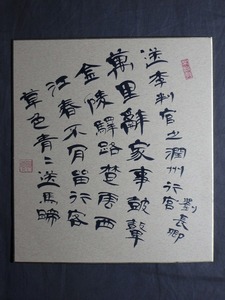 送李判官之潤州行營
劉長卿
萬里辭家事鼓鼙
金陵驛路楚雲西
江春不肯留行客
草色青々送馬蹄